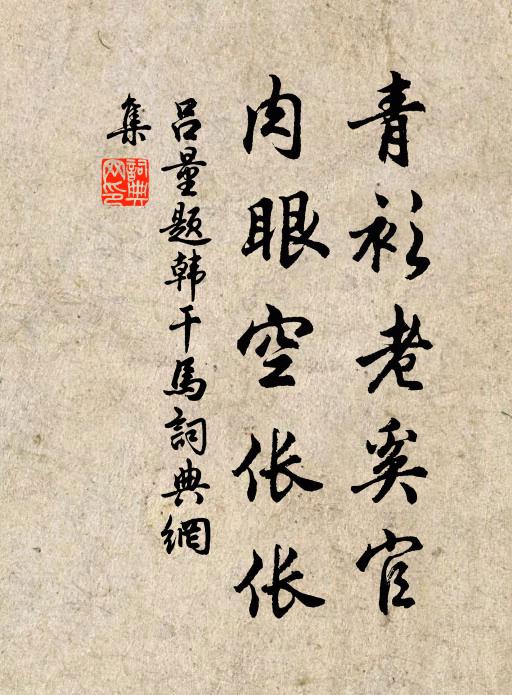 青衫老奚官
肉眼空伥伥
吕量题韩干馬詞典網
集
詞典
网印